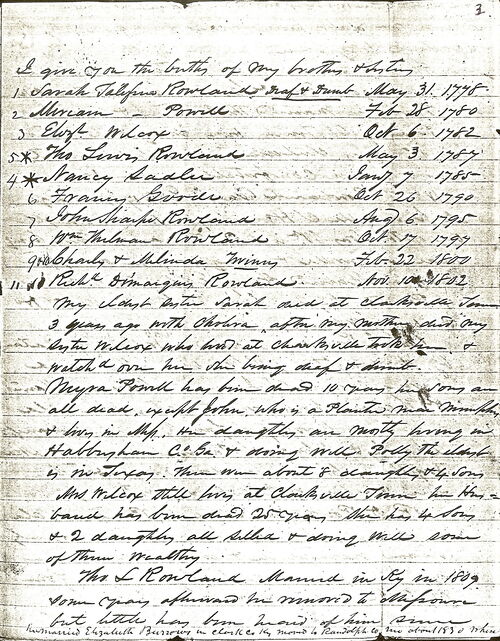 3
I give you the births of my brothers & sisters
1 Sarah Rowland Deaf & Dumb May 31. 1778
2 Miriam - Powell Feb 28 1780
3 Elizth Wilcox Oct 6 1782
5 * Tho Lewis Rowland May 3 1787
4 * Nancy Sadler Jany 7 1785
6 Francis Goode Oct 26 1790
7 John Sharpe Rowland Augt 6 1795
8 Wm Rowland Oct. 17 1797
9 Charles & Melinda Twins Feb. 22 1800
11 Richd Rowland Nov. 10 1802
My eldest sister Sarah died at Clarksville Tenn
3 years ago with Cholera, after my mother died my
sister Wilcox who lived at Clarksville took her &
watchd over her she being deaf & dumb.
Powell has been dead 10 years her sons are
all dead, except John, who is a Planter near Memphis
& lives in Miss. Her daughters are mostly living in
Habbersham Co Ga & doing well Polly the eldest
is in Texas. There were about 8 daughters & 4 sons
Mrs Wilcox still lives at Clarksville Tenn her Hus-
band has been dead 25 years She has 4 sons
& 2 daughters all settled & doing well some
of them wealthy
Tho L Rowland Married in Ky in 1809
some years afterward he removed to Missouri
but little has been heard of him since
he married Elizabeth Burrows in Clark Co Ky moved to Randolph Co Mo about 1830